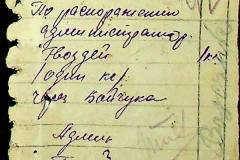 По распоряжению
администратор.
Гвоздей 1 кг.
один кг
через Вайчука
Админ